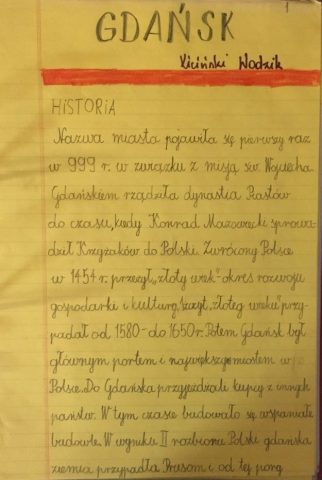 1
GDAŃSK
Kiciński Wodzik
HiSTORIA
Nazwa miasta pojawiła się pierwszy raz
w 999 r. w związku z misją św. Wojciecha
Gdańskiem rządziła dynastia Piastów
do czasu, kiedy Konrad Mazowiecki sprowa-
dził Krzyżaków do Polski. Zwrócony Polsce
w 1454 r. przeżył „złoty wiek"-okres rozwoju
gospodarki i kultury, szczyt „złotego wieku" przy-
padał od 1580-do 1650r. Potem Gdańsk był
głównym portem i największym miastem w
Polsce. Do Gdańska przyjeżdżali kupcy z innych
państw. W tym czasie budowało się wspaniałe
budowle. W wyniku II rozbioru Polski gdańska
ziemia przypadła Prusom i od tej pory